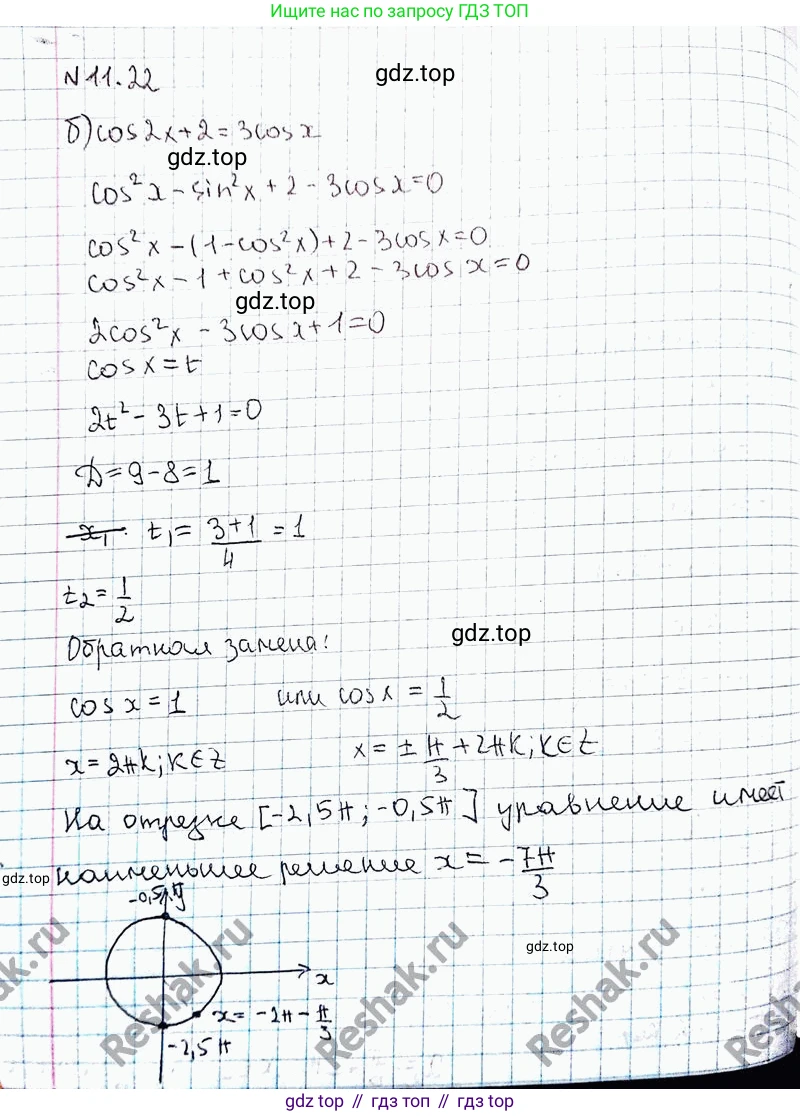 Ищите нас по запросу ГДЗ ТОП
N 11.22
gdz.top
б) cos 2x + 2 = 3cos x
gdz.top
cos²x - sin²x + 2 - 3cos x = 0
cos²x - (1 - cos²x) + 2 - 3cos x = 0
cos²x - 1 + cos²x + 2 - 3cos x = 0
gdz.top
2cos²x - 3cos x + 1 = 0
cos x = t
2t² - 3t + 1 = 0
D = 9 - 8 = 1
x₁ t₁ = (3+1)/4 = 1
t₂ = 1/2
Обратная замена:
gdz.top
cos x = 1 или cos x = 1/2
x = 2πk; k ∈ Z x = ± π/3 + 2πk; k ∈ Z
На отрезке [-2,5π; -0,5π] уравнение имеет
наименьшее решение x = -7π/3
gdz.top
-0,5π y
gdz.top
x
x = -2π - π/3
-2,5π
Reshak.ru
Reshak.ru
Reshak.ru
Reshak.ru
Reshak.ru
gdz.top // гдз топ // гдз top